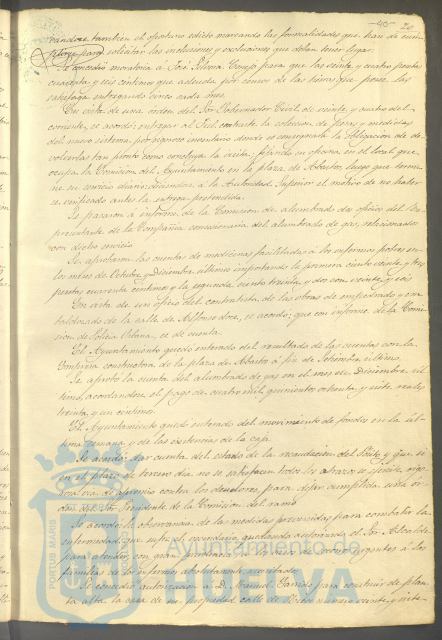 tambien el oportuno edicto marcando las formalidades que han de
para solicitar las inclusiones y exclusiones que deban tener lugar.
Se concedió moratoria á José para que las veinte y cuatro pesetas
cuarenta y seis céntimos que adeuda por censo de las tierras que posee, las
satisfaga entregando cinco cada mes.
En vista de una órden del Sor. Gobernador Civil de veinte y cuatro del
corriente, se acordó: entregar al Fiel contraste la coleccion de pesas y medidas
del nuevo sistema, por riguroso inventario donde se consigne la obligacion de de-
volverlas tan pronto como concluya la visita, fijando su oficina en el local que
ocupa la Comision del Ayuntamiento en la plaza de Abastos, luego que termi-
ne su servicio diario; diciéndose á la Autoridad Superior el motivo de no haber-
se verificado antes la entrega pretendida.
Se pasaron á informe de la Comision de alumbrado dos oficios del Re-
presentante de la Compañia concesionaria del alumbrado de gas, relacionados
con dicho servicio.
Se aprobaron las cuentas de medicinas facilitadas á los enfermos pobres en
los meses de Octubre y Diciembre último importando la primera ciento siete y tres
pesetas cuarenta céntimos y la segunda ciento treinta y dos con veinte y seis
En vista de un oficio del contratista de las obras de empedrado y em-
baldosado de la calle de Alfonso doce, se acordó: que con informe de la Comi-
sion de Policia Urbana, se dé cuenta.
El Ayuntamiento quedó enterado del resultado de las cuentas con la
Compañia constructora de la plaza de Abasto á fin de último.
Se aprobó la cuenta del alumbrado de gas en el mes de Diciembre úl-
timo, acordandose el pago de cuatro mil quinientos ochenta y siete reales
treinta y un céntimos.
El Ayuntamiento quedó enterado del movimiento de fondos en la úl-
tima semana y de las existencias de la caja.
Se acordó: dar cuenta del estado de la recaudacion del Pósito y que si
en el plazo de tercero dia no se satisfacen todos los atrasos se
de apremio contra los deudores, para dejar cumplida una ór-
den del Sor. Presidente de la Comision del ramo.
Se acordó la observancia de las medidas prevenidas para combatir la
enfermedad que sufre el vecindario, quedando autorizado el Sor. Alcalde
para atender con gran á los socorros urgentes á las
familias de los enfermos absolutamente necesitados.
Se concedió autorizacion á D. Manuel Garrido para construir de plan-
ta alta la casa de su propiedad calle de número veinte y siete
PORTUS MARIS
Ayuntamiento de
HUELVA